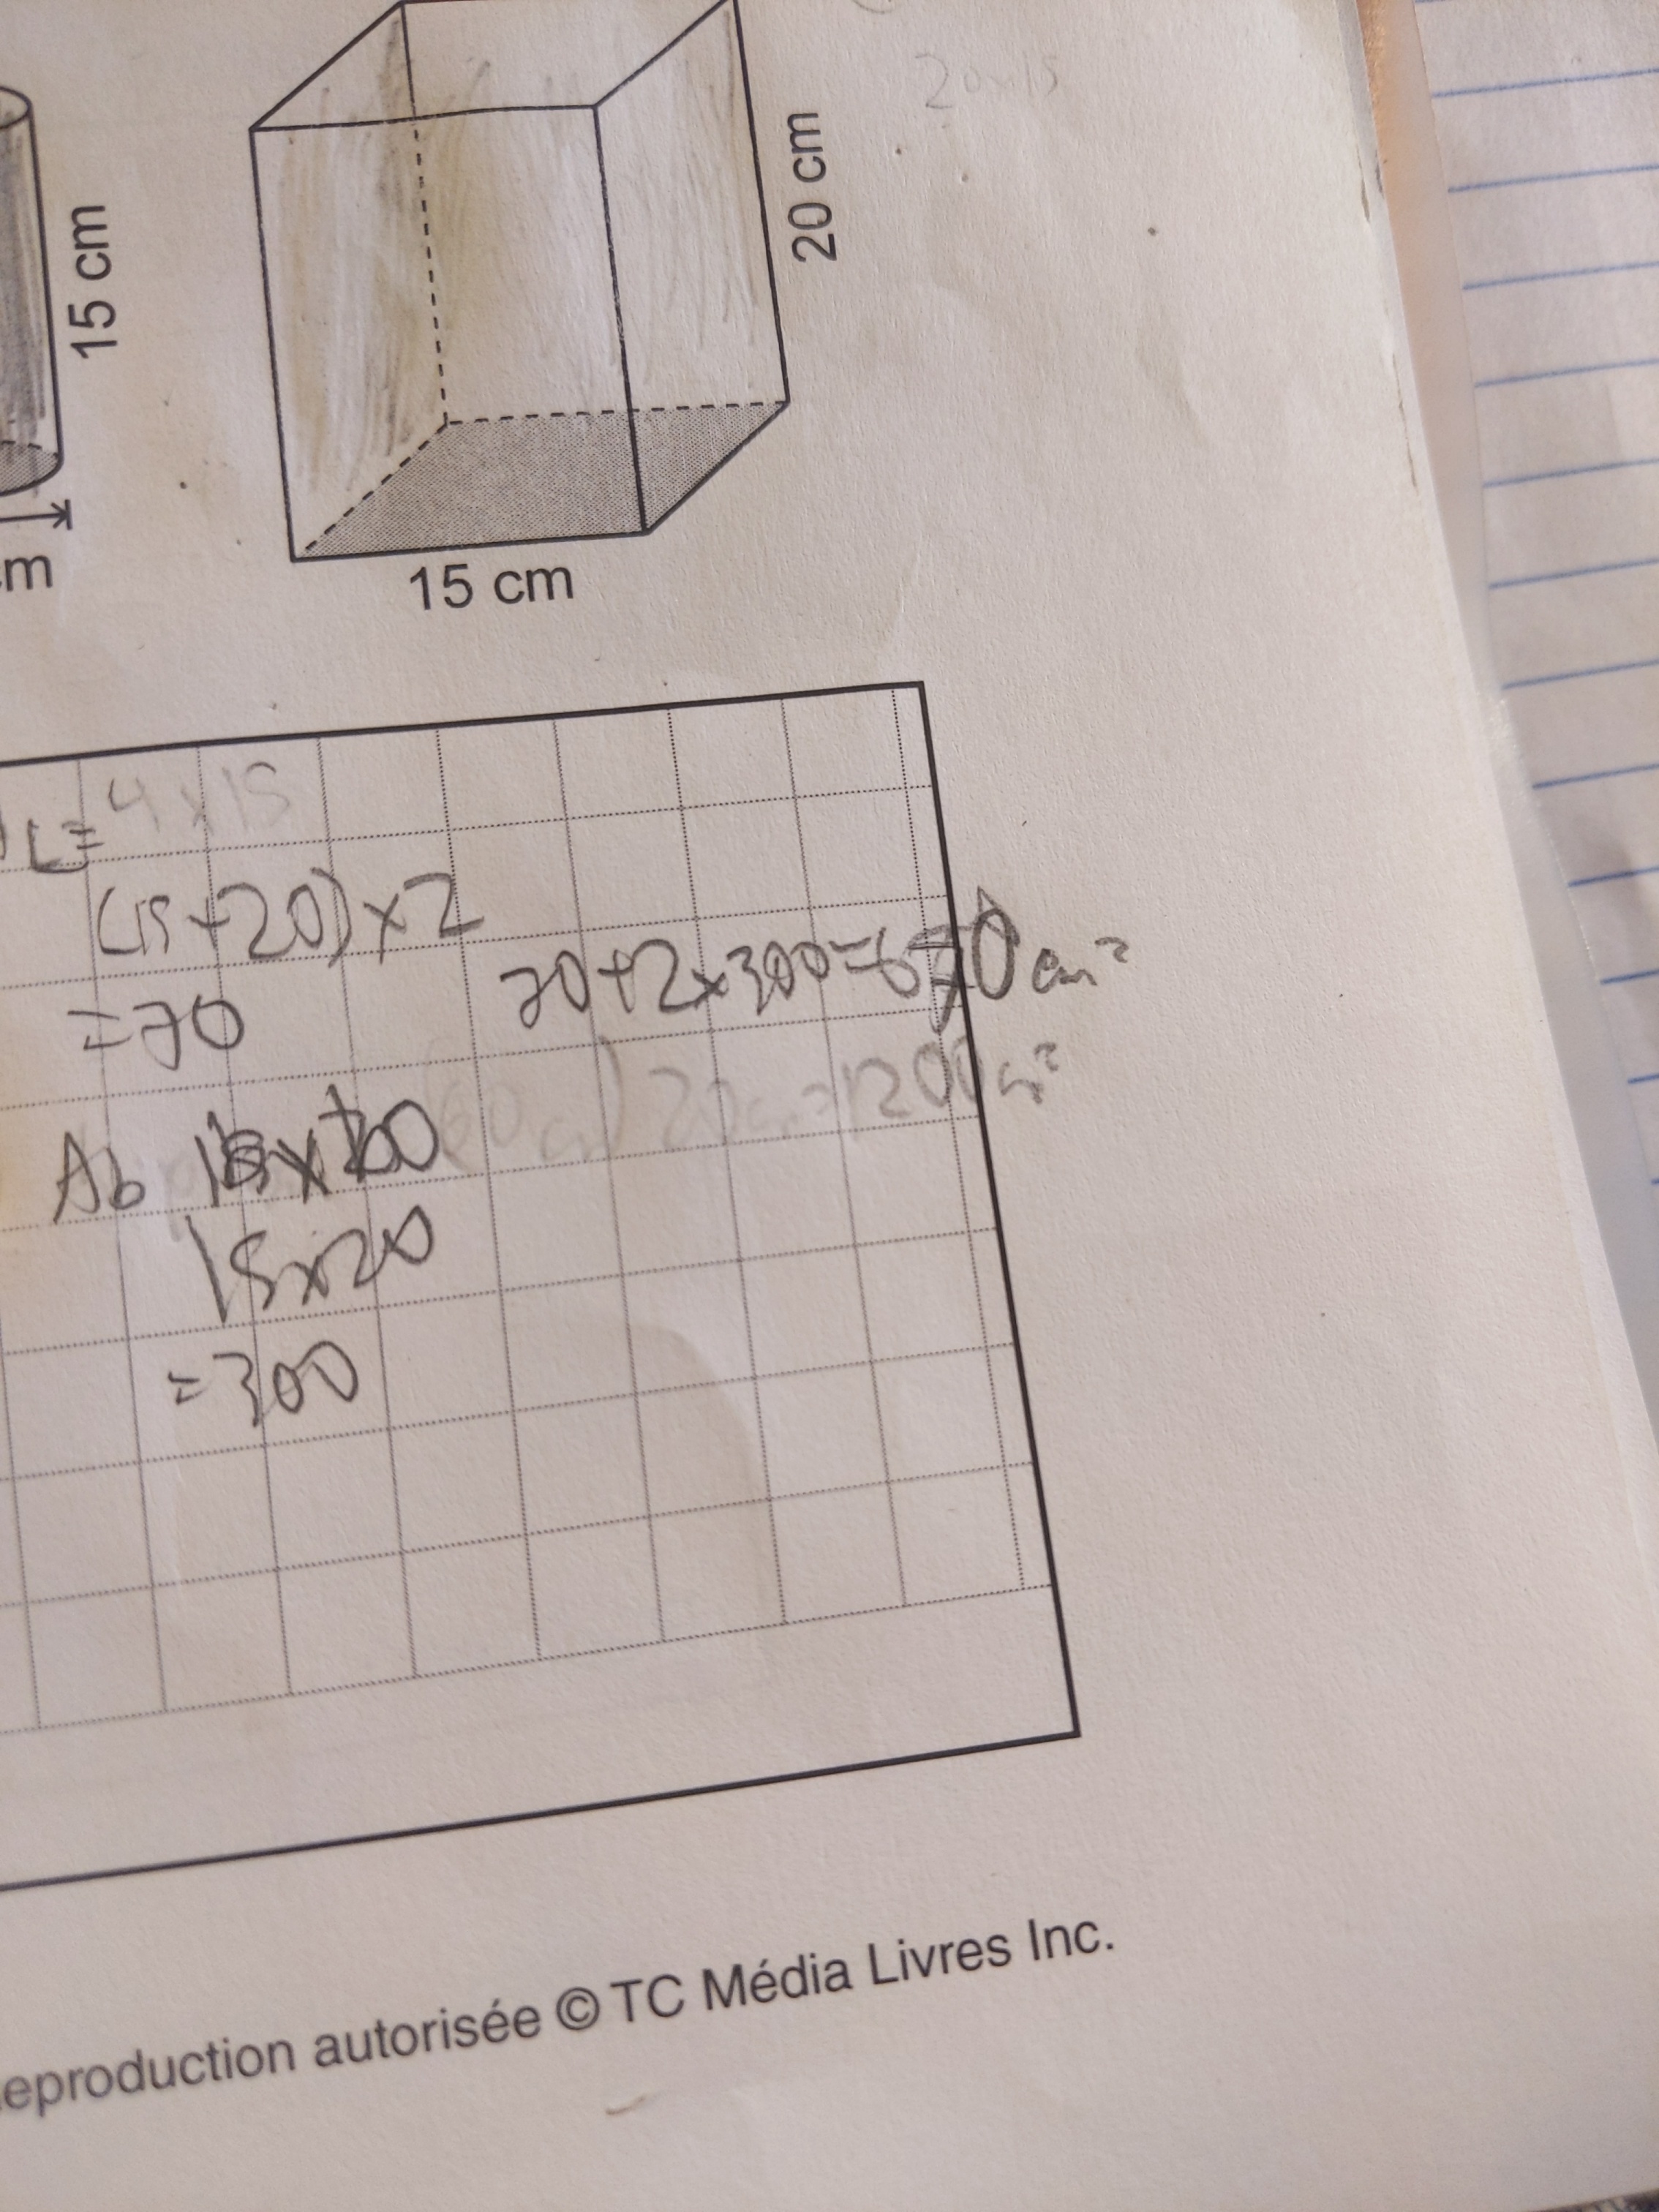 20x15
20 cm
15 cm
cm
15 cm
L= 4x15
(15+20)x2
=70
70+2x300=670cm²
(60cm) 20cm=1200cm²
Ab
15x20
=300
Reproduction autorisée © TC Média Livres Inc.